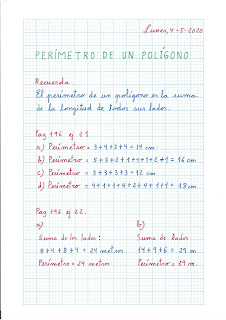 Lunes, 4-5-2020
PERÍMETRO DE UN POLÍGONO
Recuerda
El perímetro de un polígono es la suma
de la longitud de todos sus lados.
Pag 196 ej 21
a) Perímetro = 3+4+3+4 = 14 cm
b) Perímetro = 5+3+2+1+1+1+2+1 = 16 cm
c) Perímetro = 3+3+3+3 = 12 cm
d) Perímetro = 4+1+1+4+2+4+1+1 = 18 cm
Pag 196 ej 22.
a) b)
Suma de los lados: Suma de lados
8+4+8+4 = 24 metros 14+9+6 = 29 m
Perímetro = 24 metros Perímetro = 29 m.